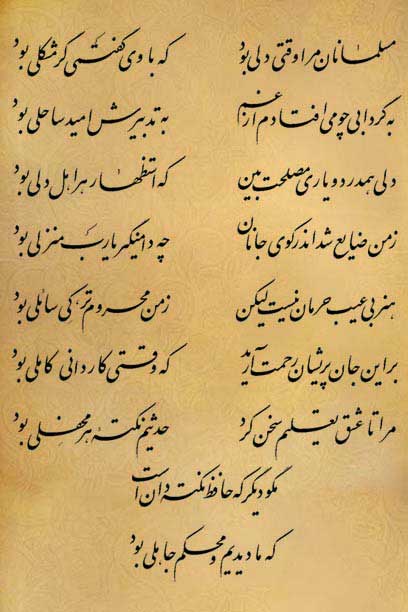 مسلمانان مرا وقتی دلی بود که با وی گفتمی گر مشکلی بود
به گردابی چو می‌افتادم از غم به تدبیرش امید ساحلی بود
دلی همدرد و یاری مصلحت بین که استظهار هر اهل دلی بود
ز من ضایع شد اندر کوی جانان چه دامنگیر یارب منزلی بود
هنر بی عیب حرمان نیست لیکن ز من محروم‌تر کی سائلی بود
بر این جان پریشان رحمت آرید که وقتی کاردانی کاملی بود
مرا تا عشق تعلیم سخن کرد حدیثم نکته هر محفلی بود
مگو دیگر که حافظ نکته‌دان است
که ما دیدیم و محکم جاهلی بود